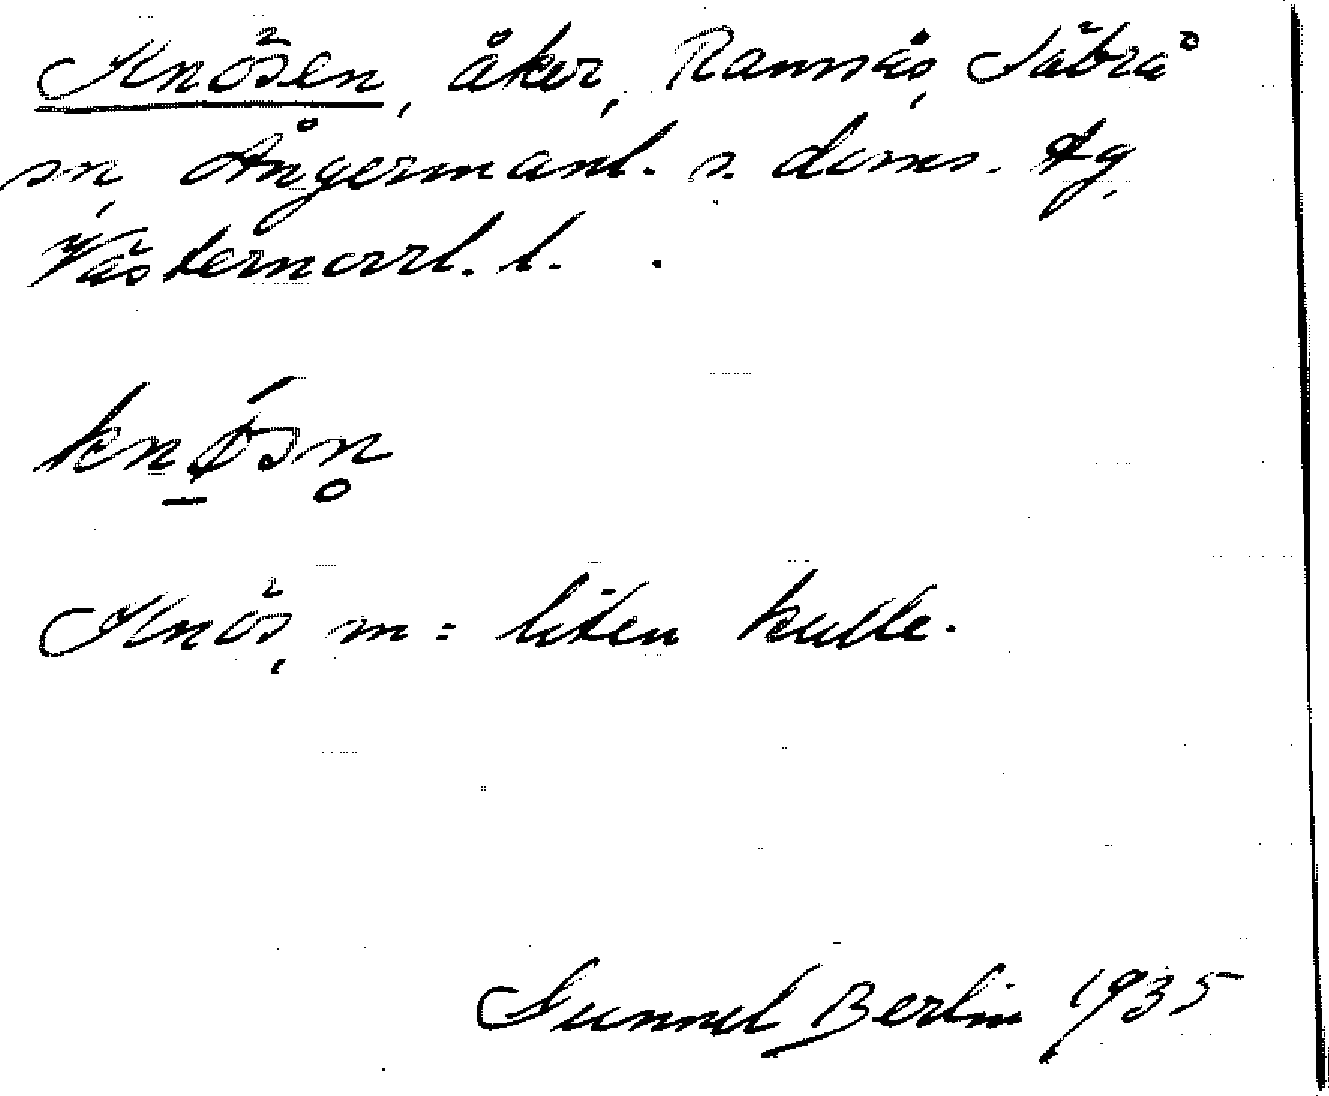 Knösen, åker, Ramnäs, Säbrå
sn, Ångermanl. s. doms. tg,
Västernorrl. l.
knø̄́sn̥
Knös, m = liten kulle.
Gunnel Berlin 1935